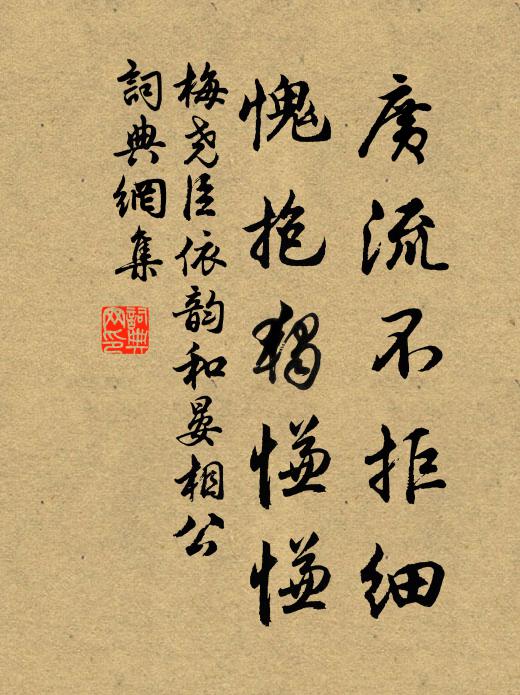 廣流不拒細
愧抱獨慊慊
梅尧臣依韵和晏相公
詞典網集
詞典网印